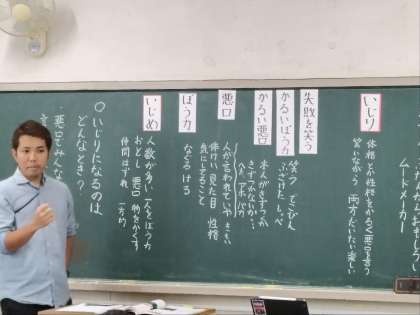 ムードメーカー
いじり
体格とか性格をかるく悪口を言う
笑いながら 両方だいたい楽しい
失敗を笑う
かるいぼう力
かるい悪口
笑う でこぴん
ふざけた しっぺ
本人がきずつか
きずつかないか…
人が言われていやなこと
体けい 見た目 性格
気にしてること
悪口
ぼう力
なぐる ける
いじめ
人数が多い 一人をぼう力
おどし 物をかくす
仲間はずれ 一方的
○いじりになるのは
どんなとき?
・悪口でみんな